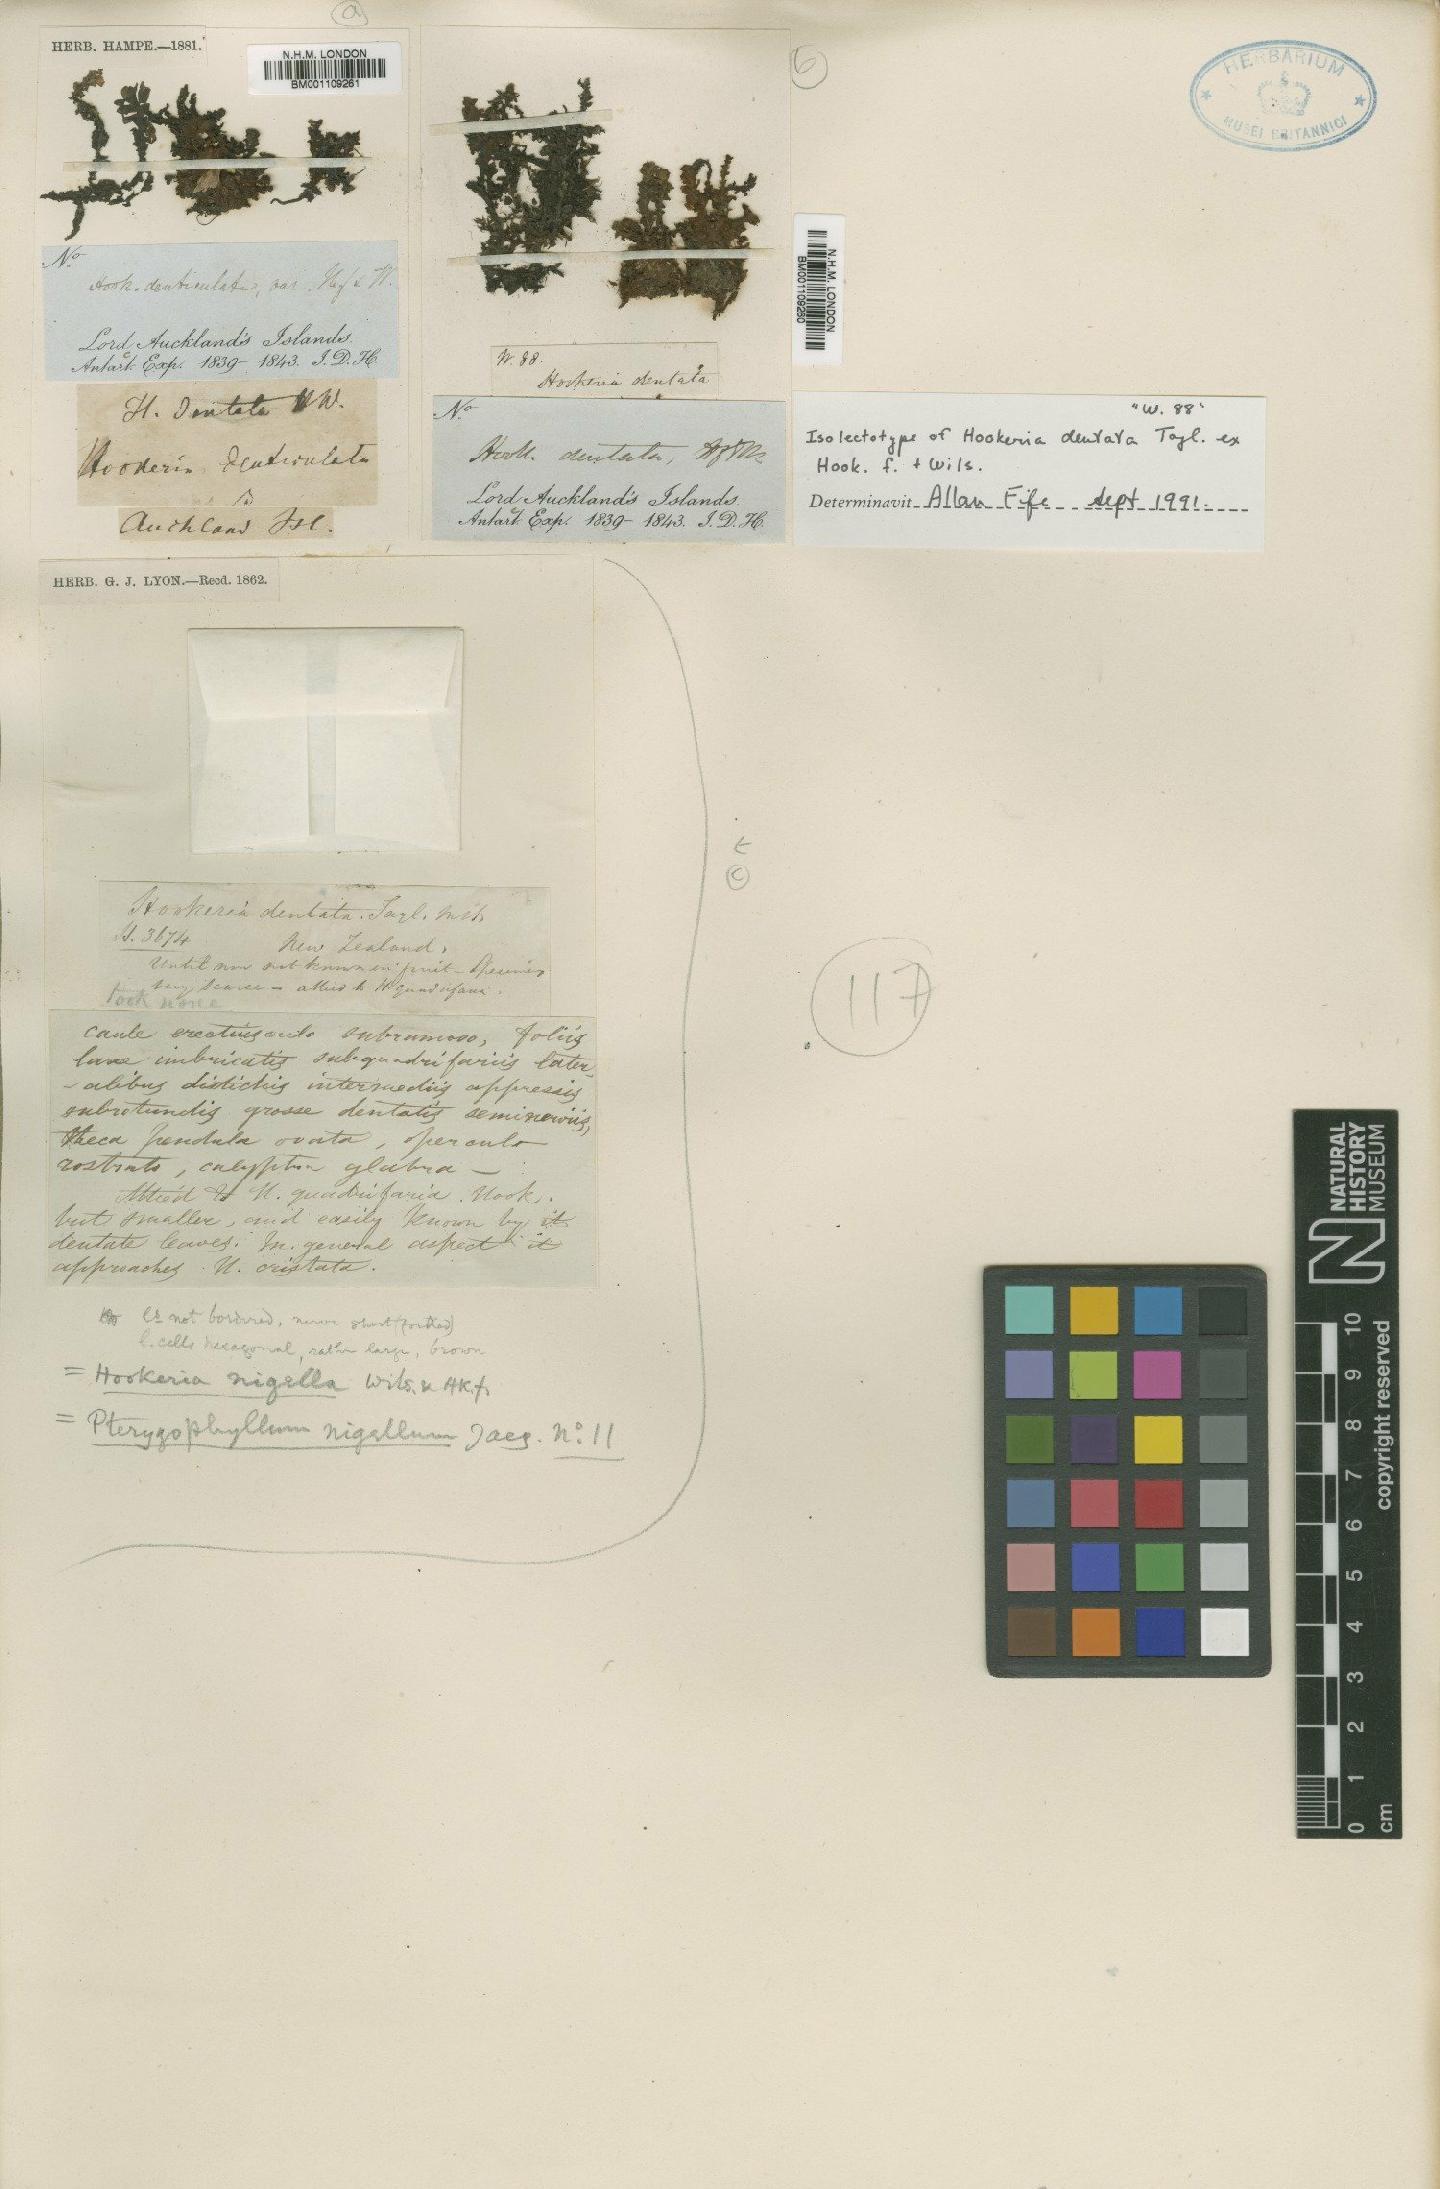 a
HERB. HAMPE.—1881.
N.H.M. LONDON
BM001109261
No
Hook. denticulata, var.
Lord Auckland's Islands.
Antarct. Exp. 1839–1843. J. D. H.
H. dentata
Hookeria denticulata
Auckland Isl.
b
N.H.M. LONDON
BM001109260
W. 88.
Hookeria dentata
No
Hook. dentata,
Lord Auckland's Islands.
Antarct. Exp. 1839–1843. J. D. H.
HERBARIUM
MUSEI BRITANNICI
"W. 88"
Isolectotype of Hookeria dentata Tayl. ex
Hook. f. + Wils.
Determinavit Allan Fife Sept 1991.
HERB. G. J. LYON.—Recd. 1862.
c
Hookeria dentata. Tayl. Mss.
3674 New Zealand.
Until now not known in fruit – Specimen
very scarce – allied to H. quadrifaria.
took none
caule erectiusculo subramoso, foliis
laxe imbricatis subquadrifariis later-
alibus distichis intermediis appressis
subrotundis grosse dentatis seminerviis,
theca pendula ovata, operculo
rostrato, calyptra glabra —
Allied to H. quadrifaria. Hook.
but smaller, and easily known by it
dentate leaves. In general aspect it
approaches H. cristata.
117
not bordered, nerve short (forked)
l. cells hexagonal, rather large, brown
= Hookeria nigella Wils. & Hk. f.
= Pterygophyllum nigellum Jaeg. No. 11
NATURAL
HISTORY
MUSEUM
N
copyright reserved
0 1 2 3 4 5 6 7 8 9 10
cm